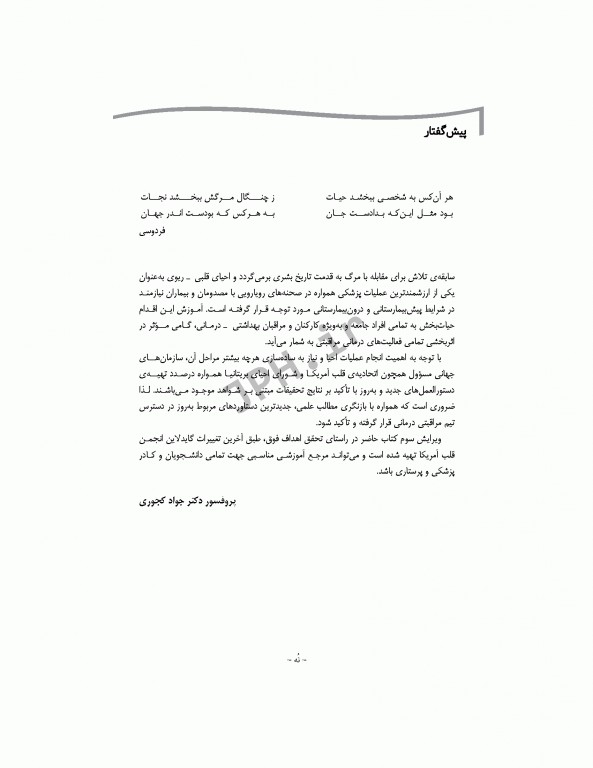 پیش‌گفتار
هر آن‌کس به شخصی ببخشد حیات ز چنگال مرگش ببخشد نجات
بود مثل این‌که بدادست جان به هرکس که بودست اندر جهان
فردوسی
سابقه‌ی تلاش برای مقابله با مرگ به قدمت تاریخ بشری برمی‌گردد و احیای قلبی ـ ریوی به‌عنوان
یکی از ارزشمندترین عملیات پزشکی همواره در صحنه‌های رویارویی با مصدومان و بیماران نیازمند
در شرایط پیش‌بیمارستانی و درون‌بیمارستانی مورد توجه قرار گرفته است. آموزش این اقدام
حیات‌بخش به تمامی افراد جامعه و به‌ویژه کارکنان و مراقبان بهداشتی ـ درمانی، گامی مؤثر در
اثربخشی تمامی فعالیت‌های درمانی مراقبتی به شمار می‌آید.
با توجه به اهمیت انجام عملیات احیا و نیاز به ساده‌سازی هرچه بیشتر مراحل آن، سازمان‌های
جهانی مسؤول همچون اتحادیه‌ی قلب آمریکا و شورای احیای بریتانیا همواره درصدد تهیه‌ی
دستورالعمل‌های جدید و به‌روز با تأکید بر نتایج تحقیقات مبتنی بر شواهد موجود می‌باشند. لذا
ضروری است که همواره با بازنگری مطالب علمی، جدیدترین دستاوردهای مربوط به‌روز در دسترس
تیم مراقبتی درمانی قرار گرفته و تأکید شود.
ویرایش سوم کتاب حاضر در راستای تحقق اهداف فوق، طبق آخرین تغییرات گایدلاین انجمن
قلب آمریکا تهیه شده است و می‌تواند مرجع آموزشی مناسبی جهت تمامی دانشجویان و کادر
پزشکی و پرستاری باشد.
پروفسور دکتر جواد کجوری
~ نُه ~
JPH.ir